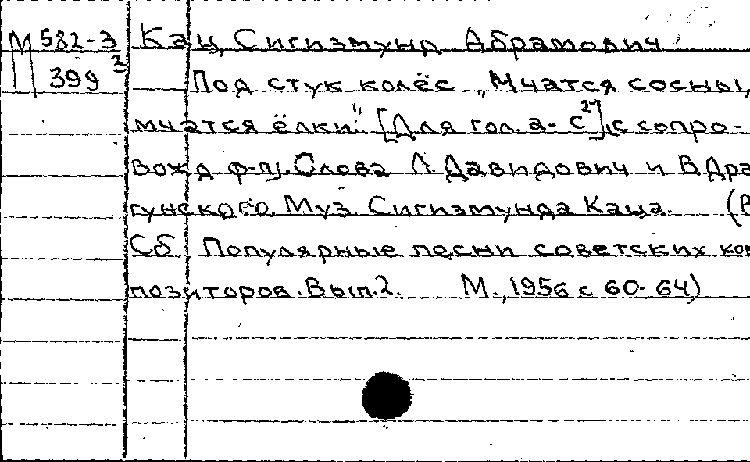 М 582-Э Кац, Сигизмунд Абрамович
399 2 Под стук колёс „Мчатся сосны,
мчатся ёлки". [Для гол. a-c²] с сопро-
вожд. ф-п. Слова Л. Давидович и В. Дра
гунского. Муз. Сигизмунда Каца. (В
Сб. Популярные песни советских ком
позиторов. Вып. 2. М., 1956 с 60-64)